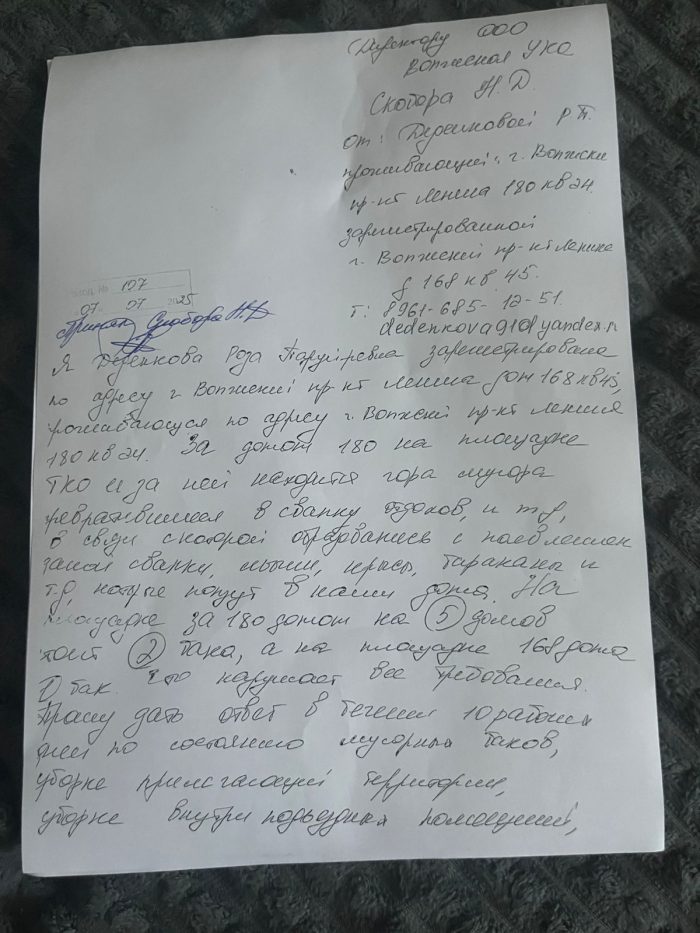 Директору ООО
Волжская УКа
Скобора Н.Д.
от: Деденковой Р.П.
проживающей: г. Волжский
пр-кт Ленина 180 кв 24.
зарегистрированной
г. Волжский пр-кт Ленина
д 168 кв. 45.
т: 8961-685-12-51.
dedenkova91@yandex.ru
107
07 07 2025
Принял Скобора Н.Д
Я Деденкова Роза зарегистрирована
по адресу г Волжский пр-кт Ленина дом 168 кв 45,
проживающая по адресу г. Волжский пр-кт Ленина
180 кв 24. За домом 180 на площадке
ТКО и за ней находится гора мусора
превратившиеся в свалку отходов, и т д,
в связи с которой образовались с появлением
самой свалки, мыши, крысы, тараканы и
т.д, которые ползут в наши дома. На
площадке за 180 домом на 5 домов
стоит 2 бака, а на площадке 168 дома
1 бак. Это нарушает все требования.
Прошу дать ответ в течении 10 рабочих
дней по состоянию мусорных баков,
уборке прилегающей территории,
уборке внутриподъездных помещений,